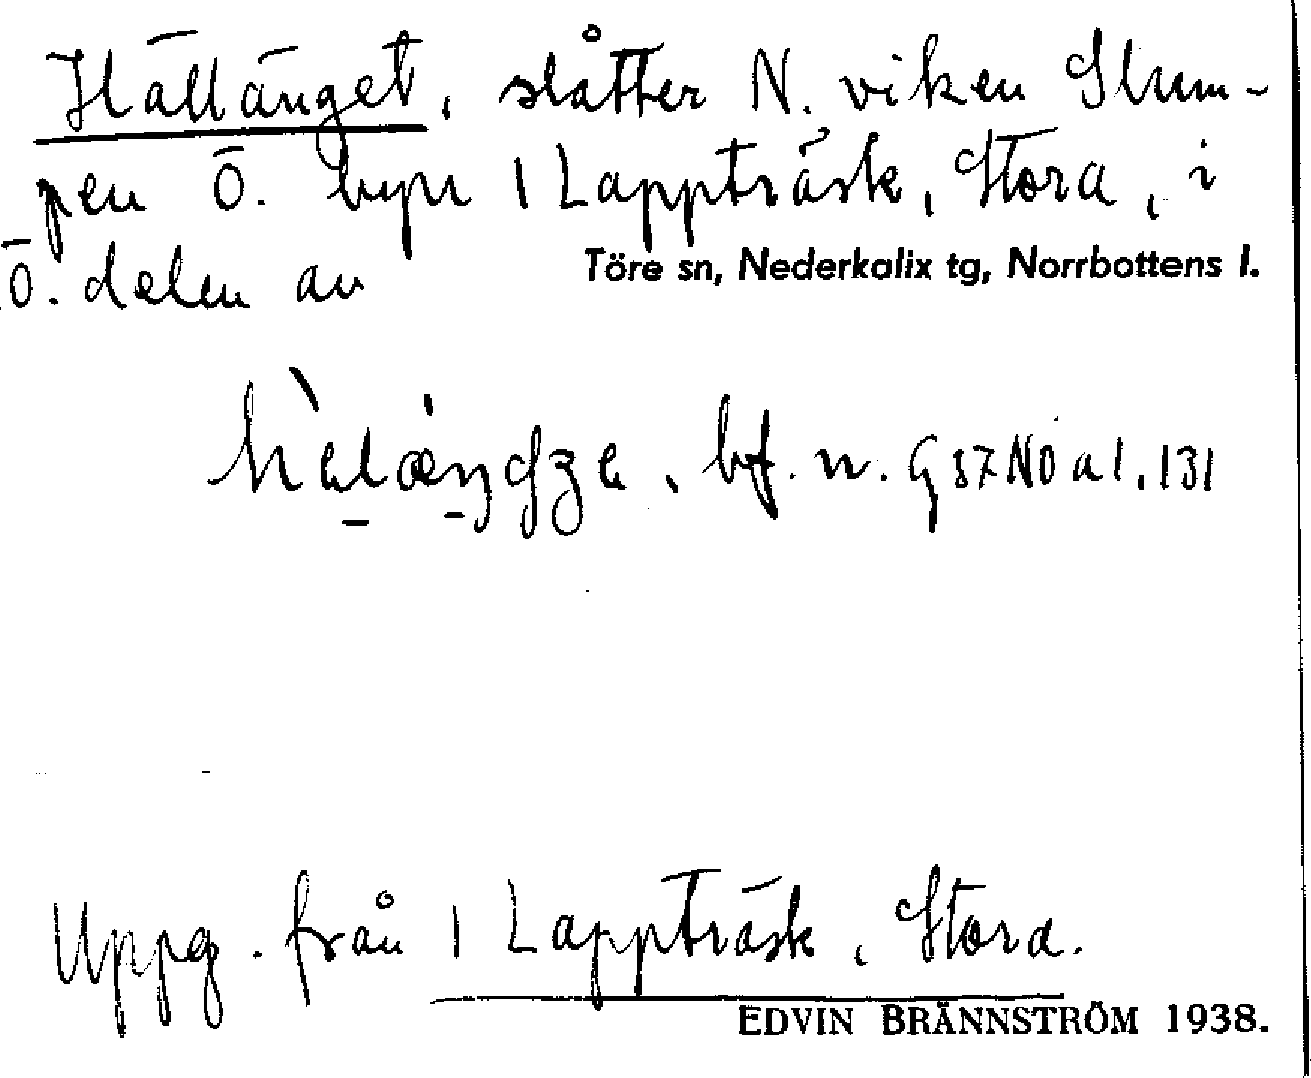 Hällänget, slåtter N. viken Slum-
pen Ö. byn 1 Lappträsk, Stora, i
Ö. delen av Töre sn, Nederkalix tg, Norrbottens l.
bf. n. G 37 NÖ a 1, 131
Uppg. från 1 Lappträsk, Stora.
EDVIN BRÄNNSTRÖM 1938.